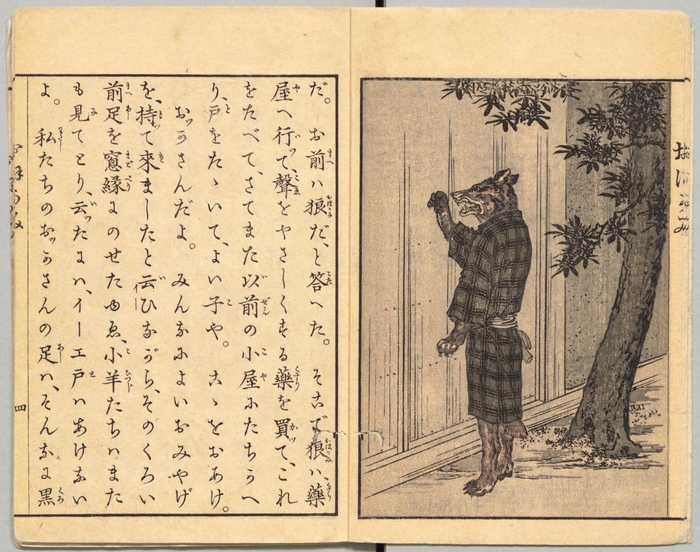 だ。お前ハ狼だ、と答へた。そこで狼ハ、藥
屋へ行ッて聲をやさしくする藥を買て、これ
をたべて、さてまた以前の小屋にたちかへ
り、戸をたゝいて、よい子や。こゝをおあけ。
おッかさんだよ。みんなによいおみやげ
を、持て來ましたと云ひながら、そのくろい
前足を窓縁にのせたゆゑ、小羊たちハまた
も見てとり、云ッたにハ、イーエ戸ハあけない
よ。私たちのおッかさんの足ハ、そんなに黒
四